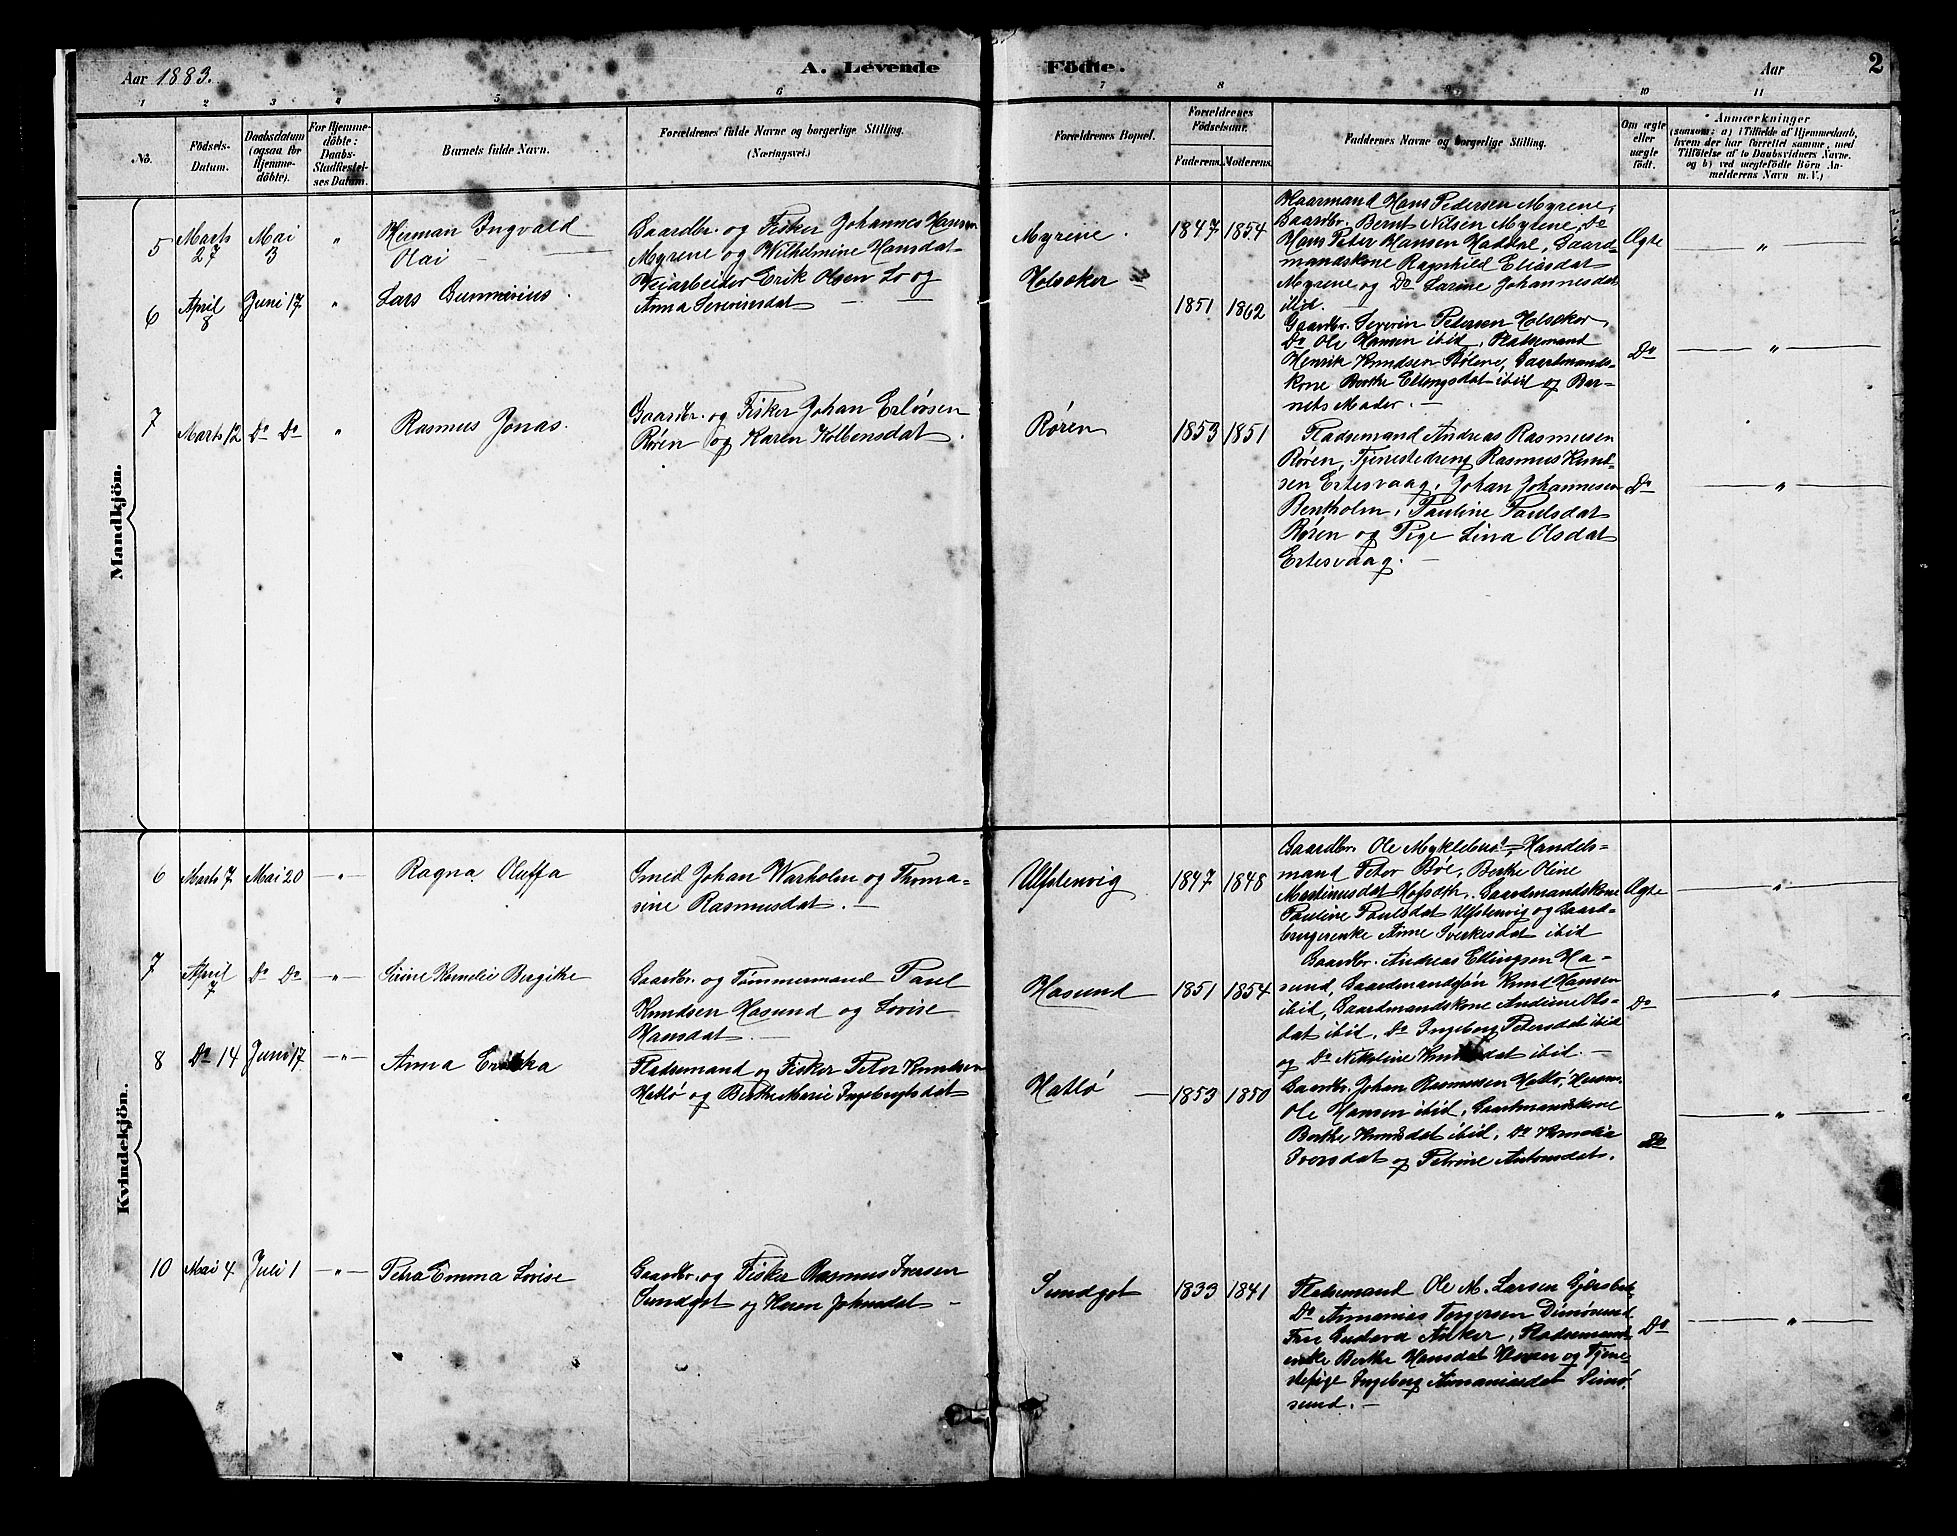 Aar 1883.
A. Levende Födte.
Aar
2
1 2 3 4 5 6 7 8 9 10 11
No.
Födsels-
Datum.
Daabsdatum
(ogsaa for
Hjemme-
döbte).
For Hjemme-
döbte:
Daabs-
Stadfæstel-
ses Datum.
Barnets fulde Navn.
Forældrenes fulde Navne og borgerlige Stilling.
(Næringsvei.)
Forældrenes Bopæl.
Forældrenes
Födselsaar.
Faderens. Moderens.
Faddernes Navne og borgerlige Stilling.
Om ægte
eller
uægte
födt.
Anmærkninger
(saasom: a) i Tilfælde af Hjemmedaab,
hvem der har forrettet samme, med
Tilföielse af to Daabsvidners Navne.
og b) ved uægtefödte Börn An-
melderens Navn m. V.)
Mandkjön.
5
Marts
27
Mai
3
"
Herman Ingvald
Olai
Gaardbr. og Fisker Johannes Hansen
Myrene og Wilhelmine Hansdat
Myrene.
1847 1854
Haarmand Hans Pedersen Myrene,
Gaardbr. Bernt Nilsen Myrene, Do
Hans Peter Hansen Haddal, Gaard-
mandskone Ragnhild Eliasdat
Myrene og Do Larine Johannesdat
ibid.
Ægte
"
6
April
8
Juni 17
"
Lars Gunnerius.
Veiarbeider Erik Olsen Lo og
Anna Severinsdat
Holseker
1851 1862
Gaardbr. Severin Petersen Holseker,
Do Ole Hansen ibid, Pladsemand
Henrik Knudsen Bölene, Gaardmands-
kone Berthe Ellingsdat ibid og Bar-
nets Moder.
Do
"
7
Marts 12
Do Do
"
Rasmus Jonas.
Gaardbr. og Fisker Johan Erlövsen
Røren og Karen Kolbensdat.
Røren
1853 1851
Pladsemand Andreas Rasmusen
Røren, Tjenestedreng Rasmus Knud-
sen Ertesvaag, Johan Johannesen
Bentholm, Pauline Paulsdat
Røren og Pige Lina Olsdat
Ertesvaag.
Do
"
Kvindekjön.
6
Marts 7.
Mai 20
"
Ragna Oluffa
Smed Johan Warholm og Thoma-
sine Rasmusdat.
Ulfstenvig
1847 1848
Gaardbr. Ole Myklebust, Handels-
mand Peter Böe, Berthe Oline
Martinusdat Hofseth, Gaardmandskone
Pauline Paulsdat Ulfstenvig og Gaard-
brugerenke Anne Sverkesdat ibid
Ægte
"
7
April
7
Do Do
"
Sirine Kornelie Bergithe
Gaardbr. og Tømmermand Paul
Knudsen Hasund og Lovise
Hansdat.
Hasund
1851 1854
Gaardbr. Andreas Ellingsen Ha-
sund, Gaardmandssøn Knud Hansen
ibid, Gaardmandskone Andrine Ols-
dat ibid, Do Ingeborg Petersdat ibid
og Do Nikoline Knudsdat ibid.
Do
"
8
Do 14
Juni 17
"
Anna Erikka
Pladsemand og Fisker Peter Knudsen
Hatlö og Berthe Marie Ingebrigtsdat
Hatlö
1853 1850
Gaardbr. Johan Rasmusen Hatlö, Husm.
Ole Hansen ibid, Gaardmandskone
Berthe Knudsdat ibid, Do Kornelia
Iversdat og Petrine Antonsdat.
Do
"
10
Mai 4.
Juli 1
"
Petra Emma Lovise
Gaardbr. og Fisker Rasmus Iversen
Sundgot og Karen Johnsdat
Sundgot
1833 1841
Pladsemand Ole M. Larsen
Do Annanias Torgersen Dimösund,
Frue Gustava Anker, Pladsemand-
enke Berthe Hansdat og Tjene-
stepige Ingeborg Annaniasdat Dimö,
sund.
Do
"